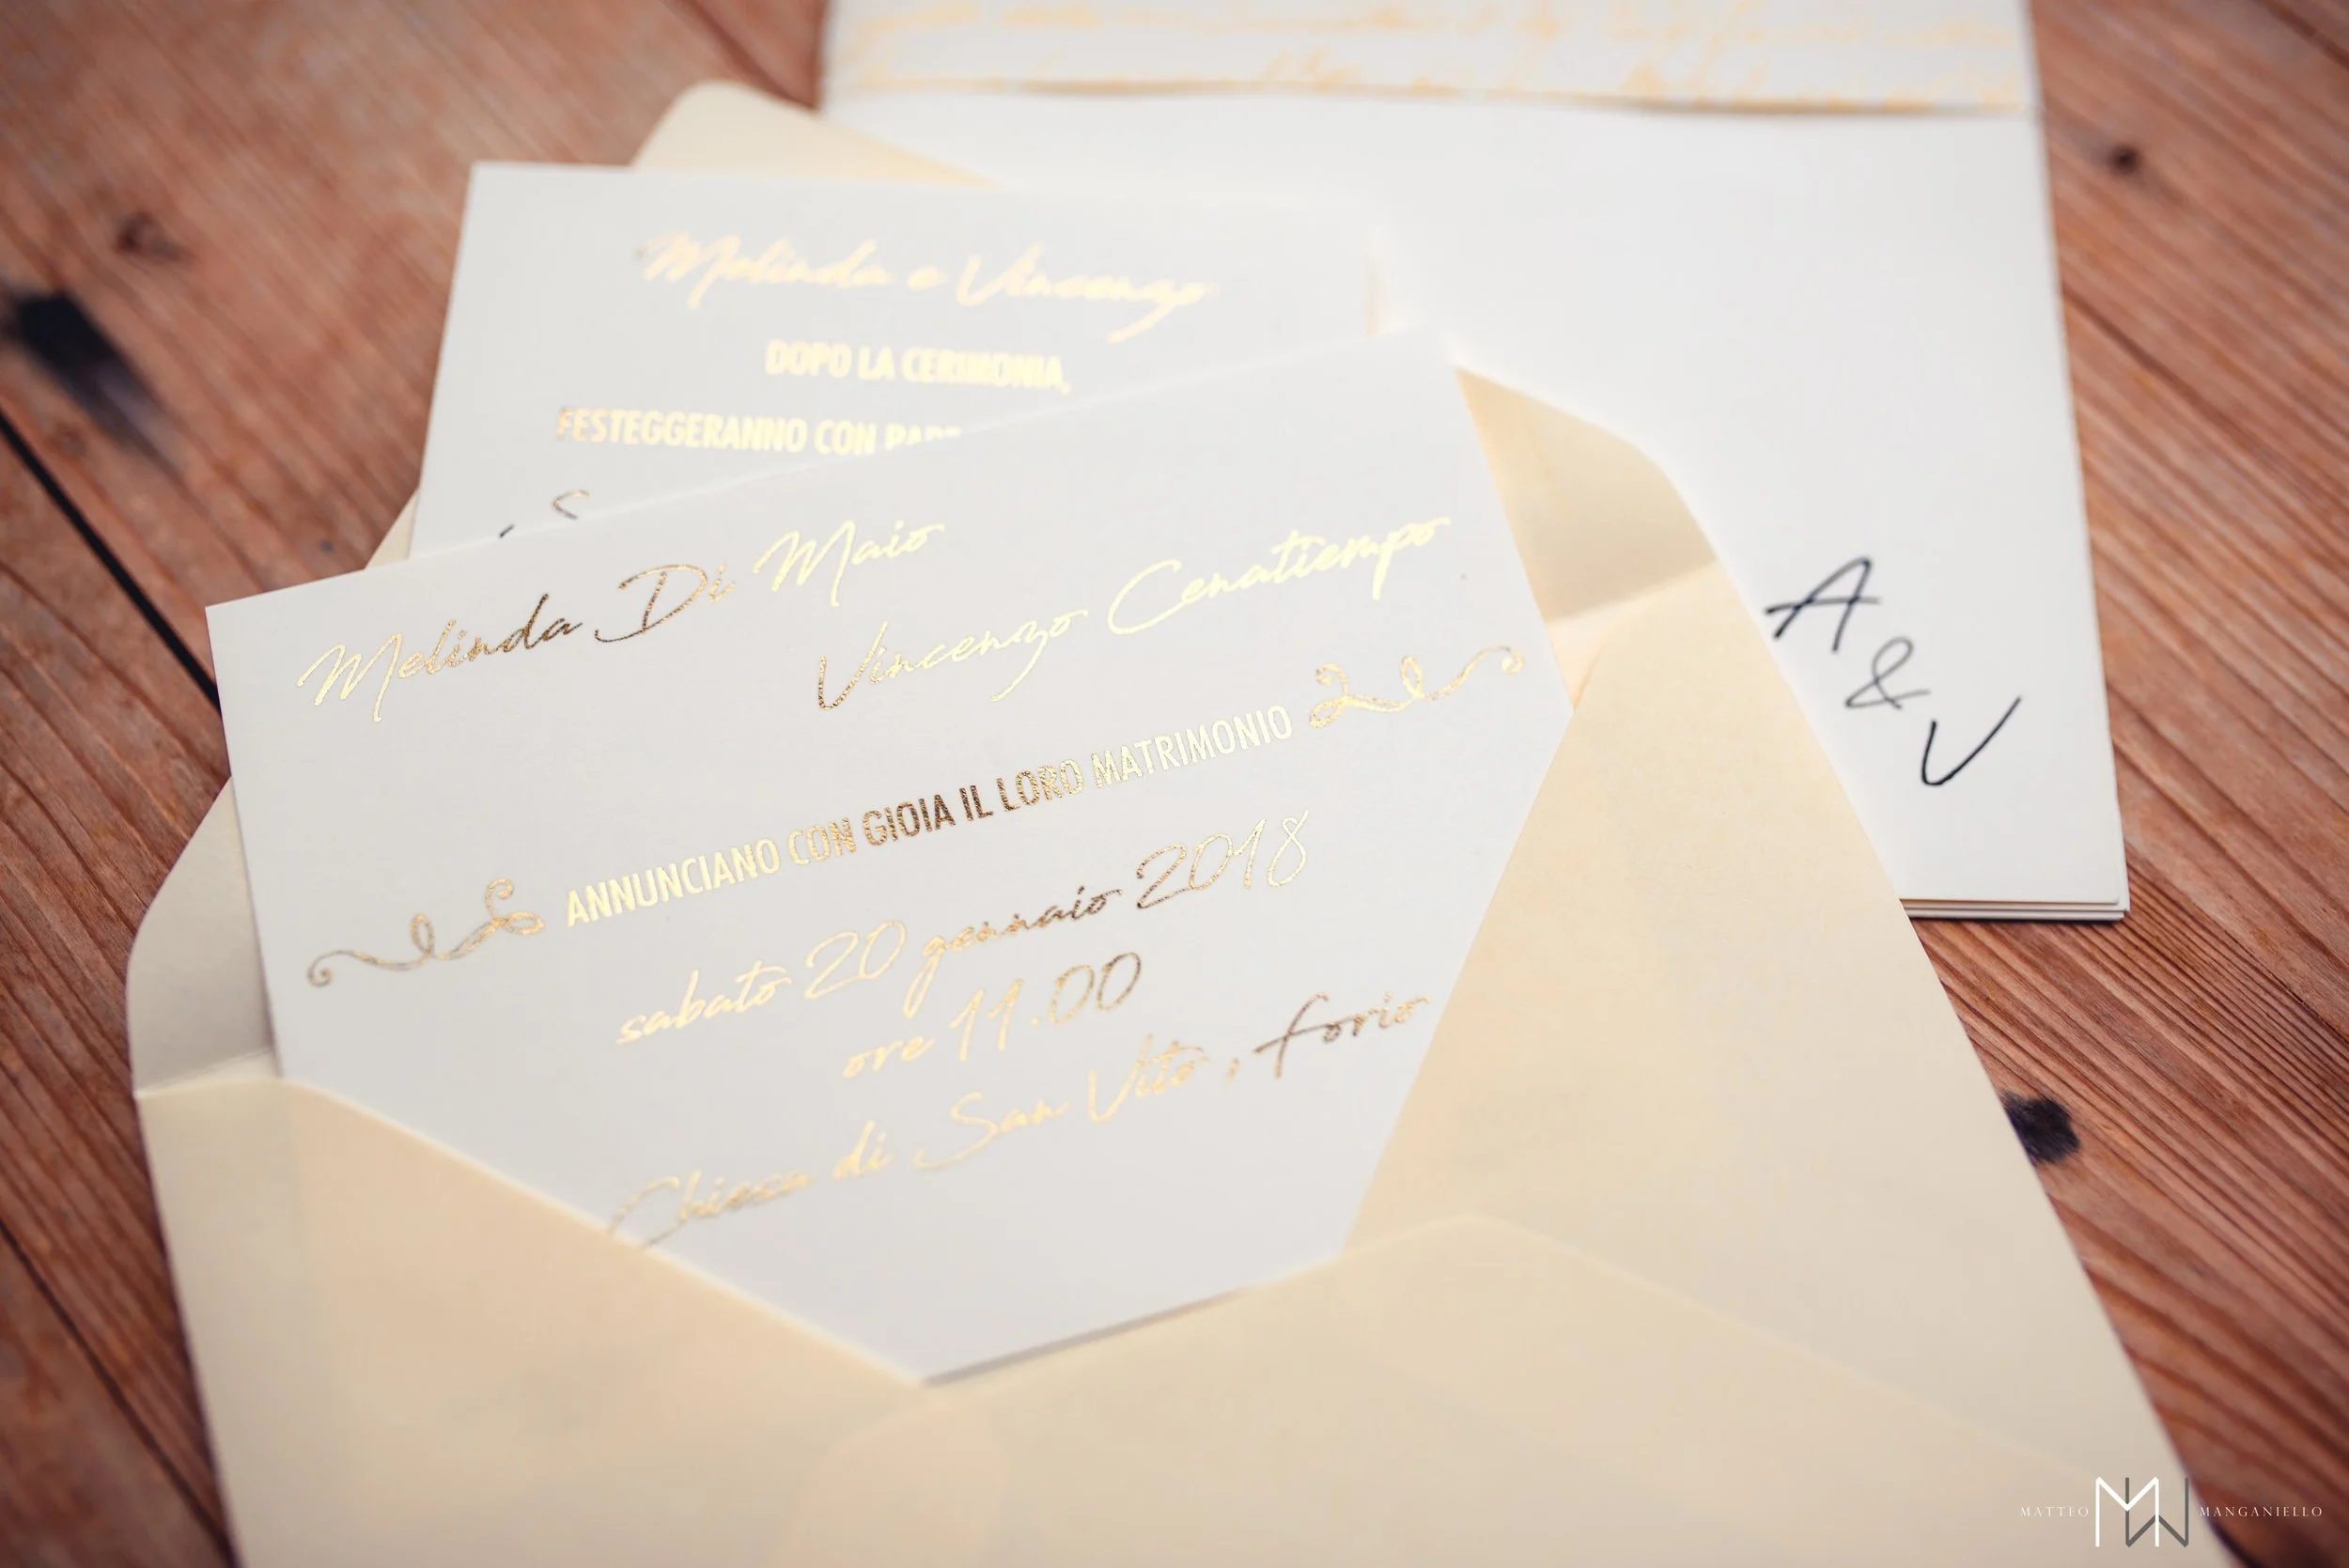 Melinda e Vincenzo
DOPO LA CERIMONIA,
FESTEGGERANNO CON
Melinda Di Maio
Vincenzo Cenatiempo
ANNUNCIANO CON GIOIA IL LORO MATRIMONIO
sabato 20 gennaio 2018
ore 11.00
Chiesa di San Vito, forio
A
&
V
MATTEO MANGANIELLO